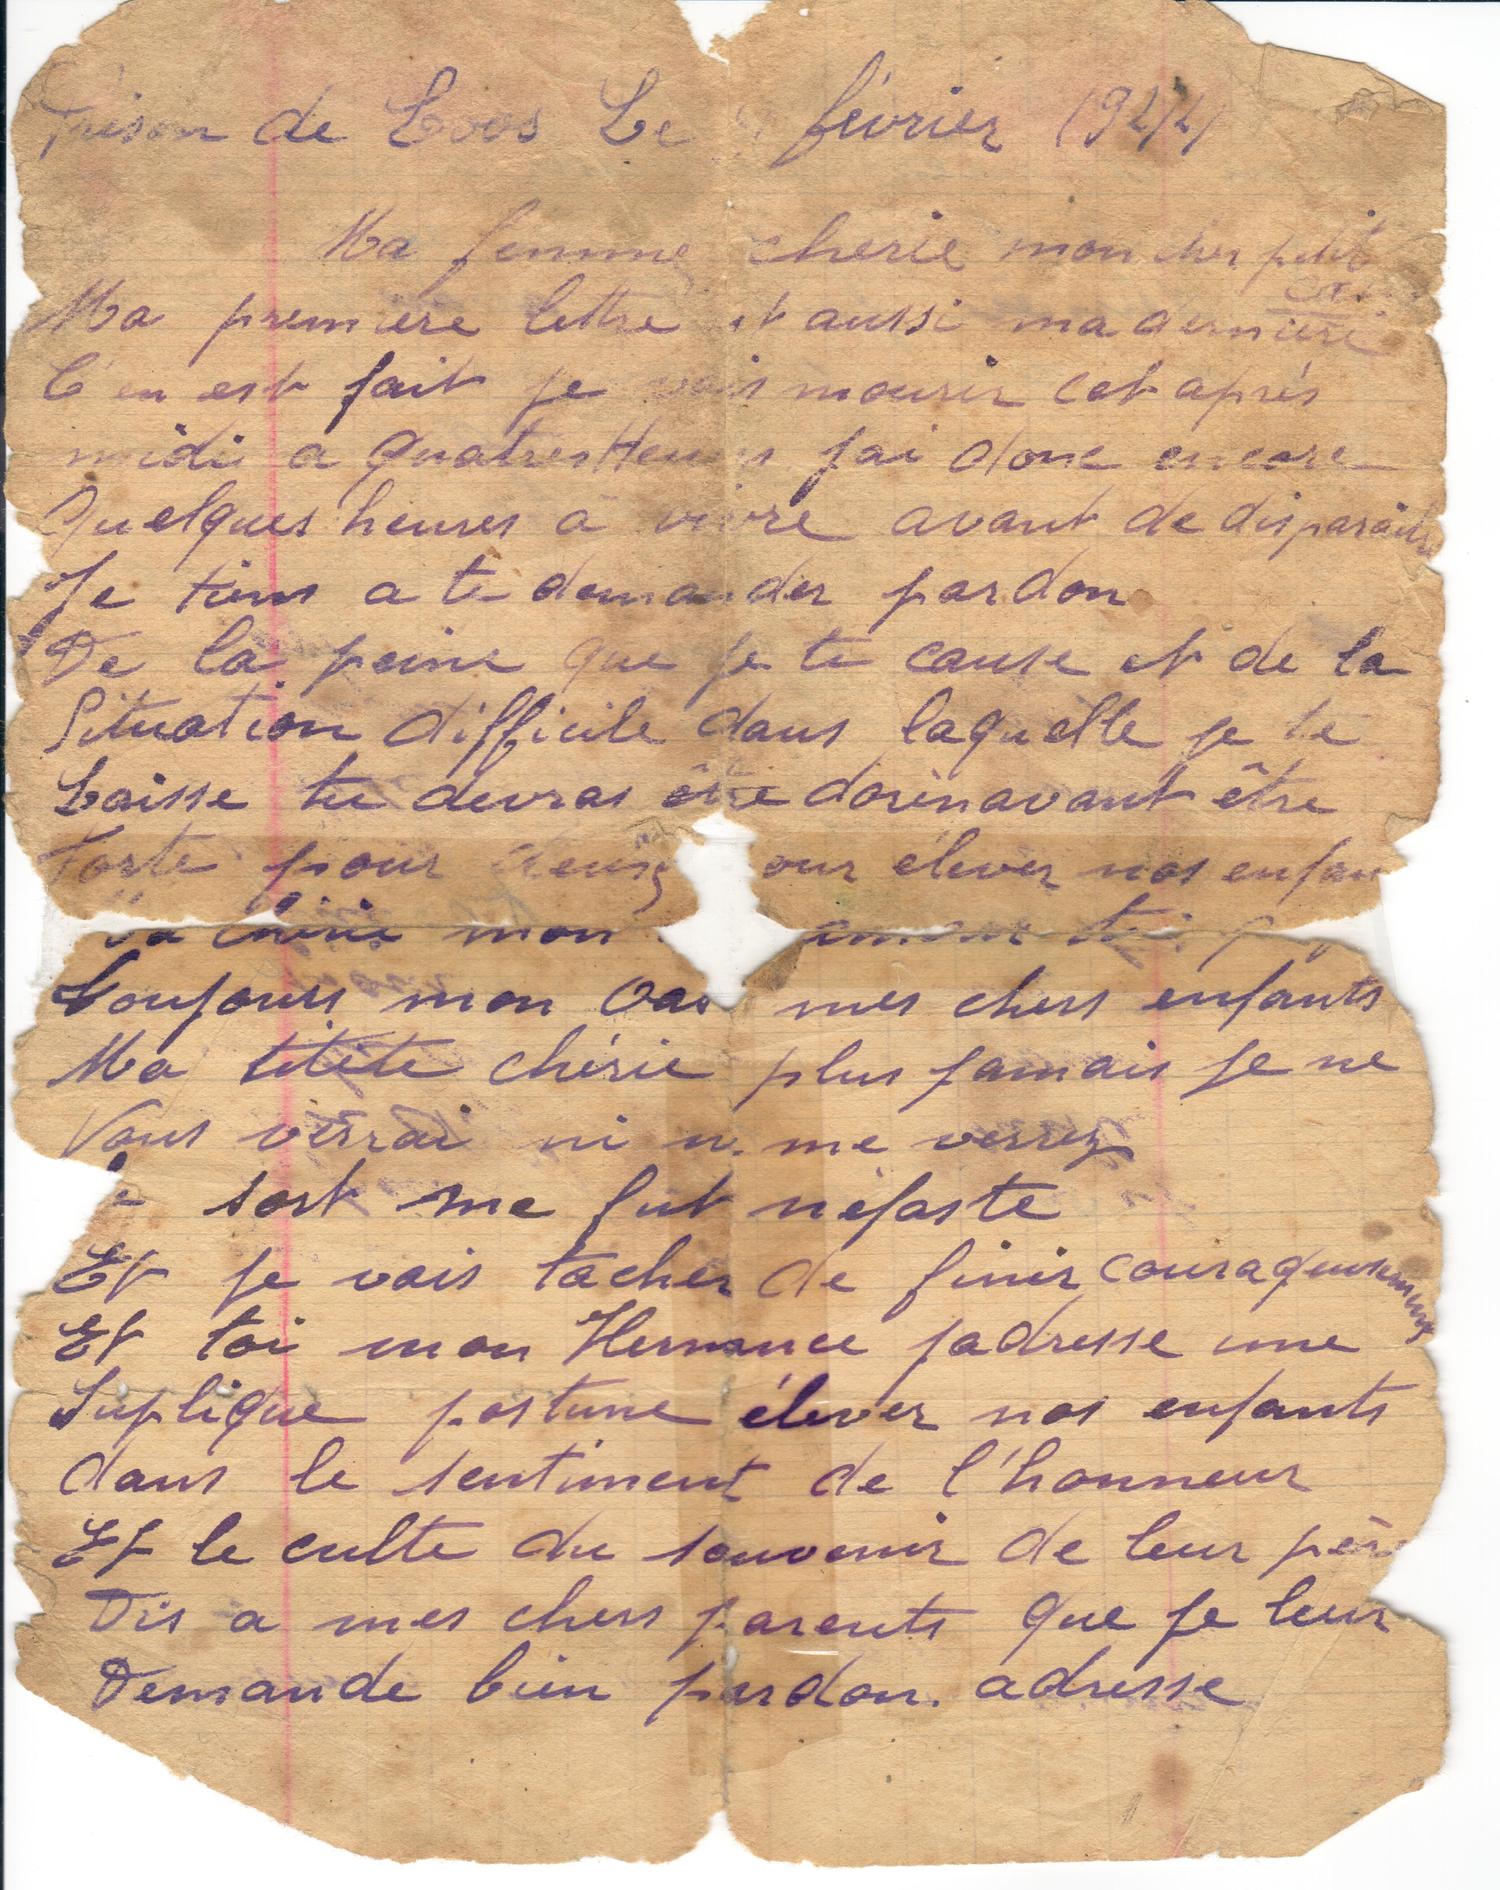 Prison de Loos Le février 1944
Ma femme cherie mon cher petit
Ma premiere lettre et aussi ma derniere
C'en est fait je vais mourir cet aprés
midi a quatres Heures j'ai donc encore
Quelques heures à vivre avant de disparaitre
Je tiens a te demander pardon
De la peine que je te cause et de la
Situation difficile dans laquelle je te
Laisse tu devras être dorénavant être
Forte pour deux pour élever nos enfan
chérie mon amour toi
Toujours mon mes chers enfants
Ma titete chérie plus jamais je ne
Vous verrai ni me verrez
Le sort me fut néfaste
Et je vais tacher de finir courageusement
Et toi mon Hermance j'adresse une
Suplique postume élever nos enfants
dans le sentiment de l'honneur
Et le culte du souvenir de leur père
Dis a mes chers parents que je leur
Demande bien pardon. adresse